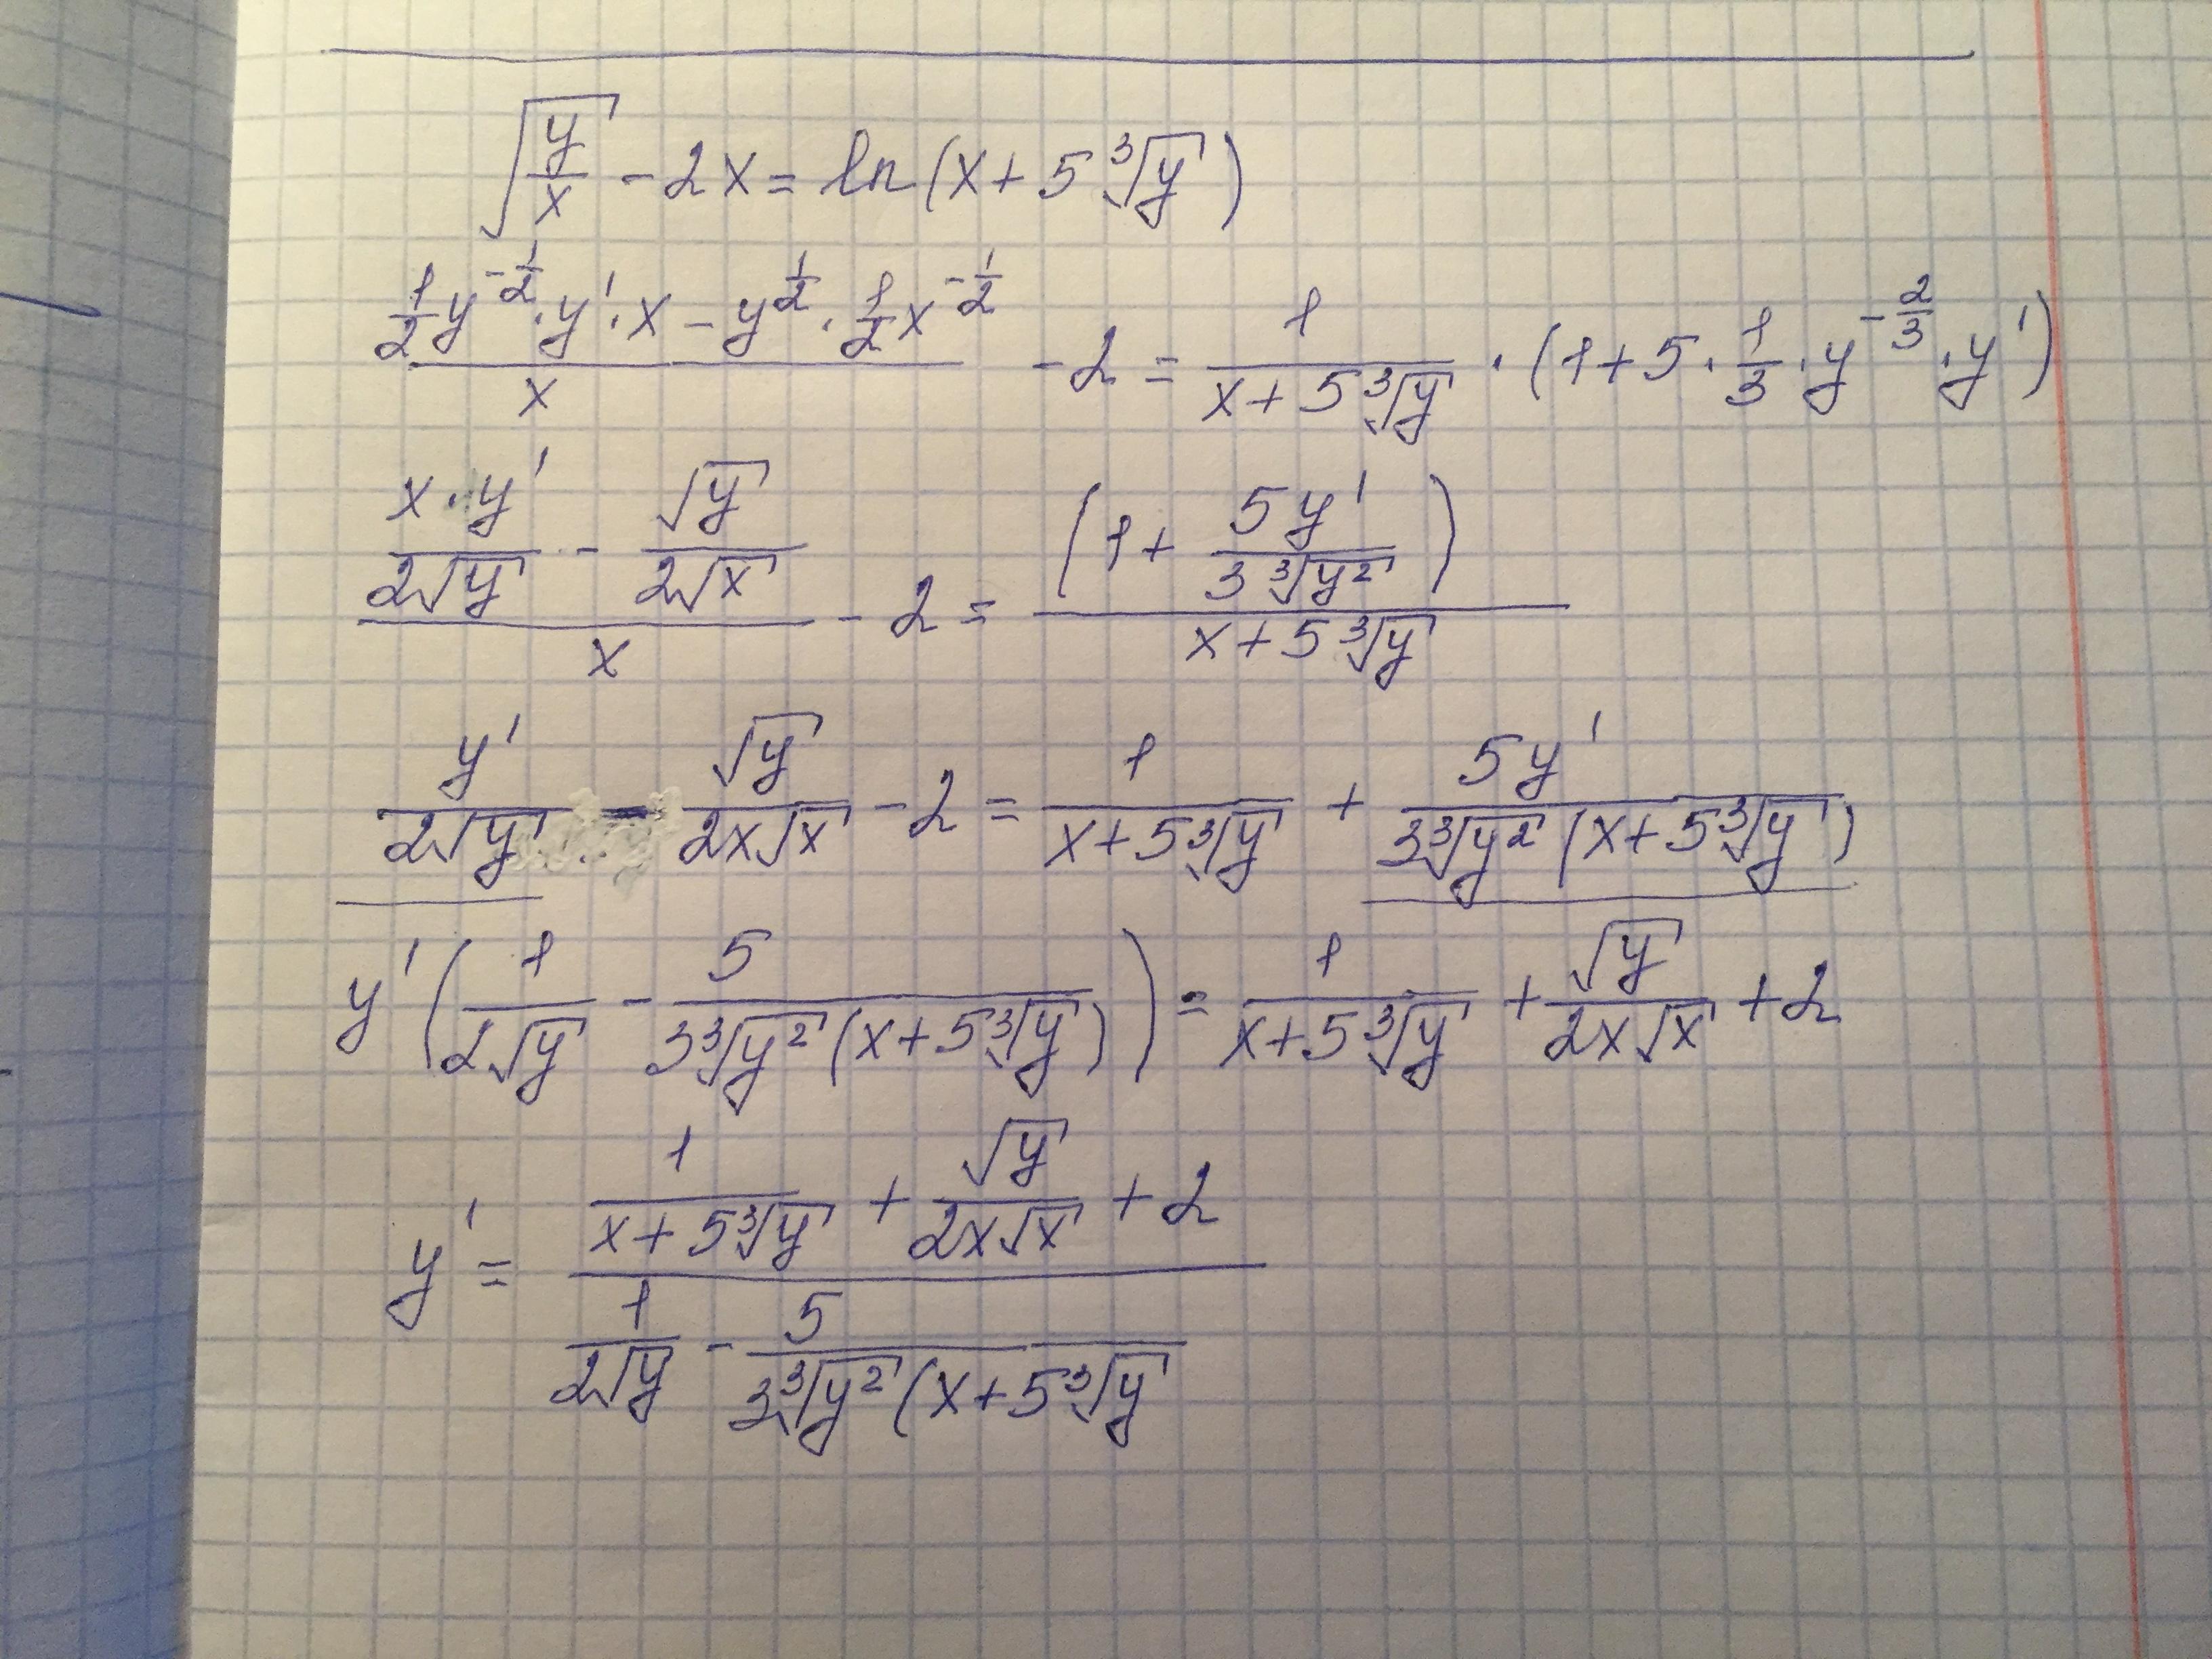 √(y/x) - 2x = ln(x + 5∛y)
(1/2 y^(-1/2) · y' · x - y^(1/2) · 1/2 x^(-1/2))/x - 2 = 1/(x + 5∛y) · (1 + 5 · 1/3 · y^(-2/3) · y')
((x · y')/(2√y) - √y/(2√x))/x - 2 = (1 + 5y'/(3∛y²))/(x + 5∛y)
y'/(2√y) - √y/(2x√x) - 2 = 1/(x + 5∛y) + 5y'/(3∛y²(x + 5∛y))
y'(1/(2√y) - 5/(3∛y²(x + 5∛y))) = 1/(x + 5∛y) + √y/(2x√x) + 2
y' = (1/(x + 5∛y) + √y/(2x√x) + 2)/(1/(2√y) - 5/(3∛y²(x + 5∛y))